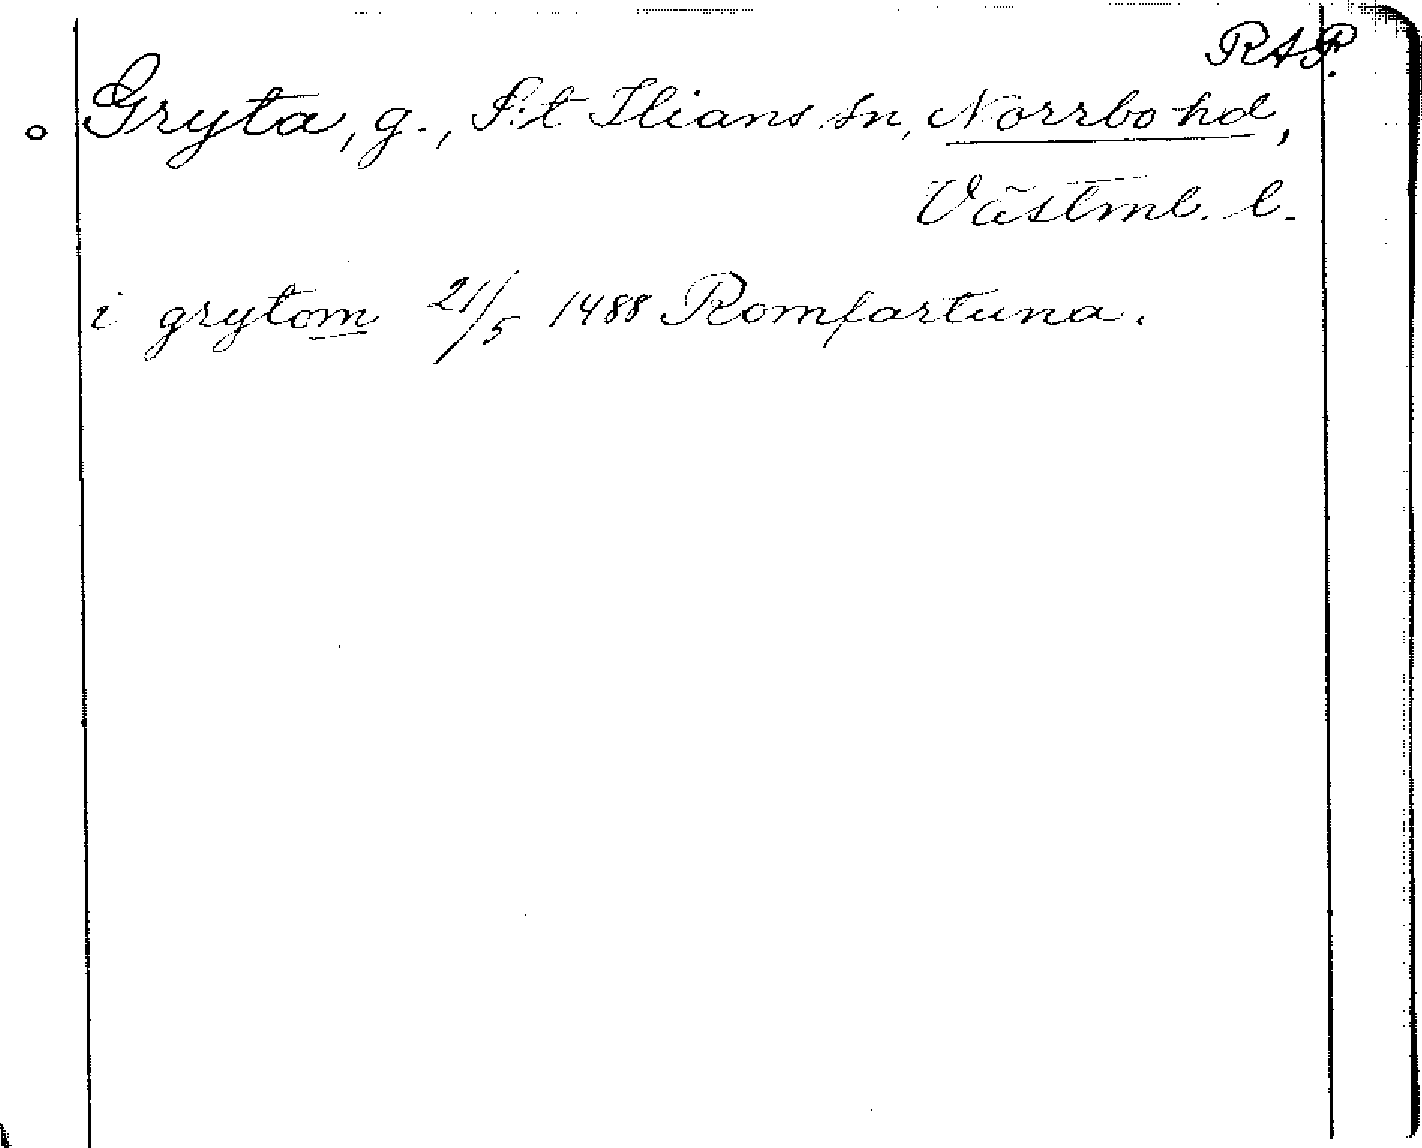 RAP.
Gryta, g., S:t Ilians sn, Norrbo hd,
Västml. l.
i grytom 21/5 1488 Romfartuna.